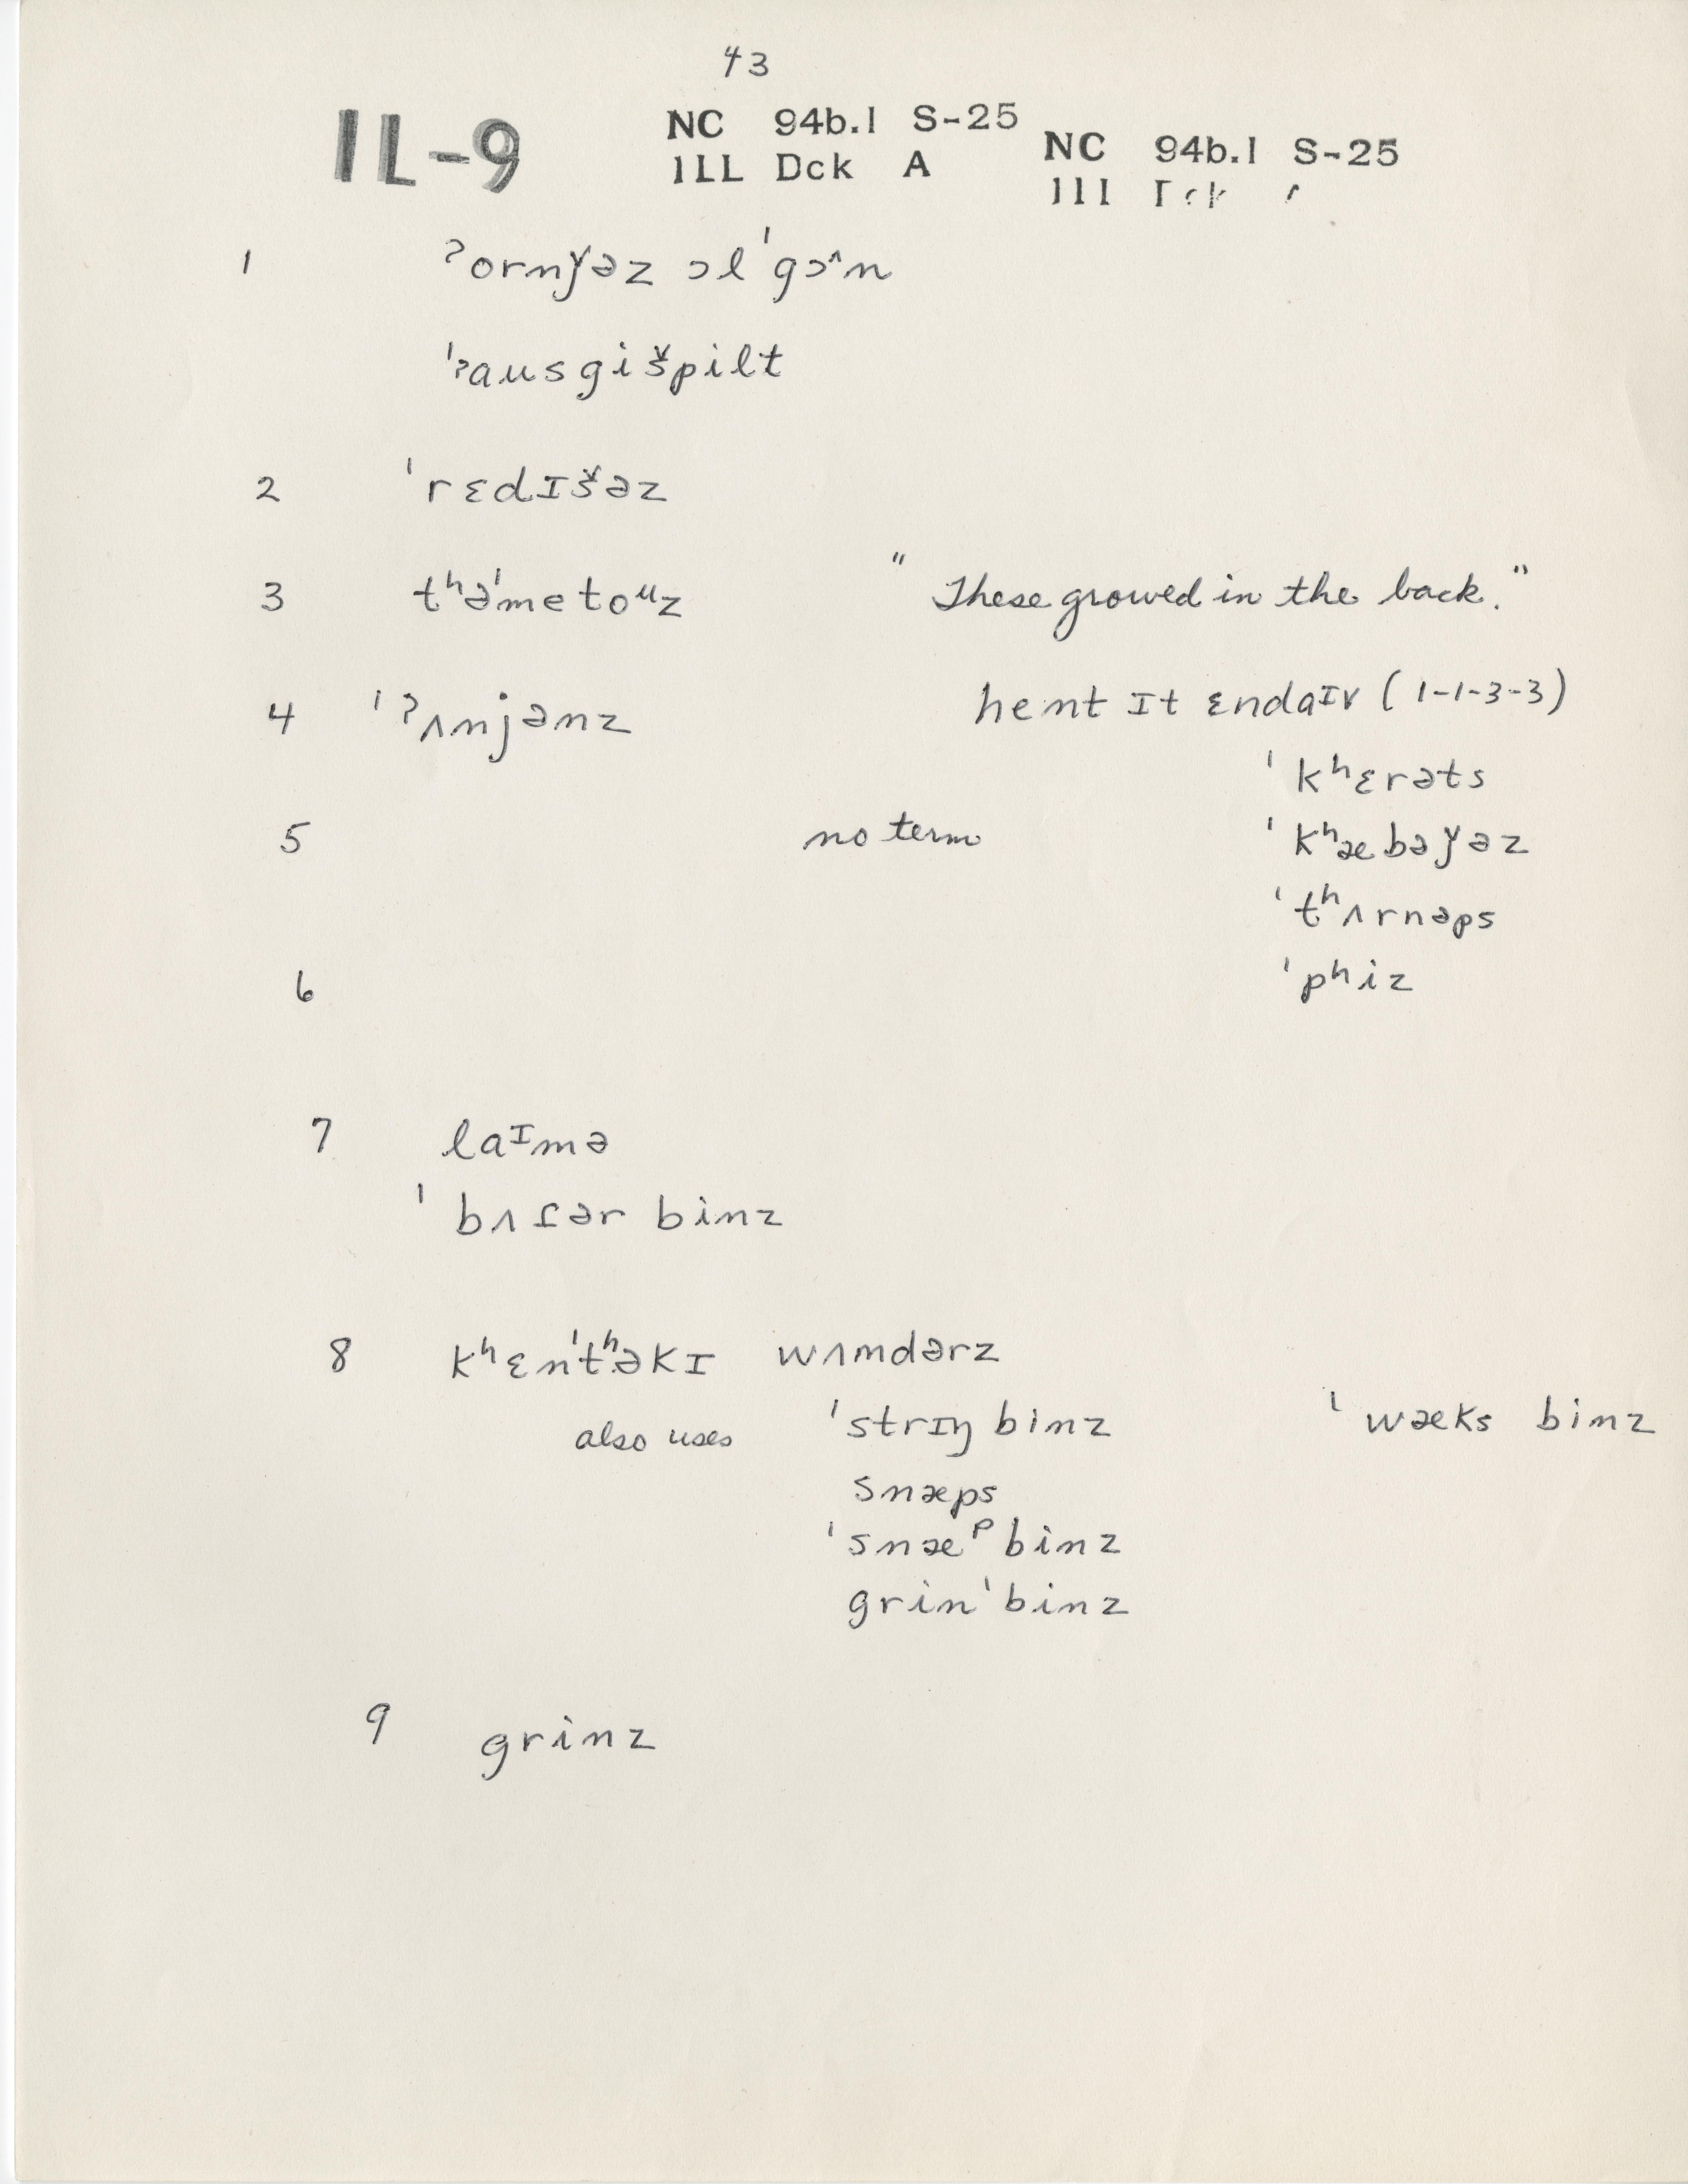 43
IL-9
NC 94b.1 S-25
ILL Dck A
NC 94b.1 S-25
1 ˀornǰəz ɔl ˈgɔ^n
ˈˀausgišpilt
2 ˈrɛdɪšəz
3 tʰəˈmetoᵘz "These growed in the back."
4 ˈˀʌnjənz hent ɪt ɛndaɪv (1-1-3-3)
ˈkʰɛrəts
5 no term ˈkʰæbəǰəz
ˈtʰʌrnəps
6 ˈpʰiz
7 laᶦmə
ˈbʌɾər binz
8 kʰɛnˈtʰəkɪ wʌmdərz
also uses ˈstrɪŋ binz ˈwæks binz
snæps
ˈsnæᵖ binz
grinˈbinz
9 grinz